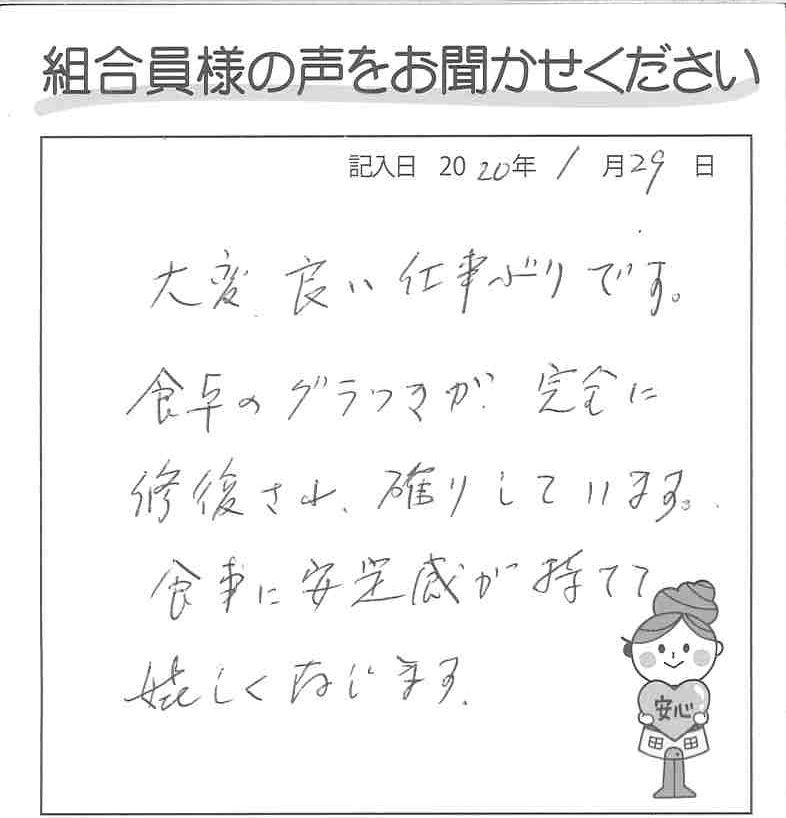 組合員様の声をお聞かせください
記入日 2020年 1月29日
大変良い仕事ぶりです。
食卓のグラつきが完全に
修後され、確りしています。
食事に安定感が持てて
嬉しく存じます。
安心